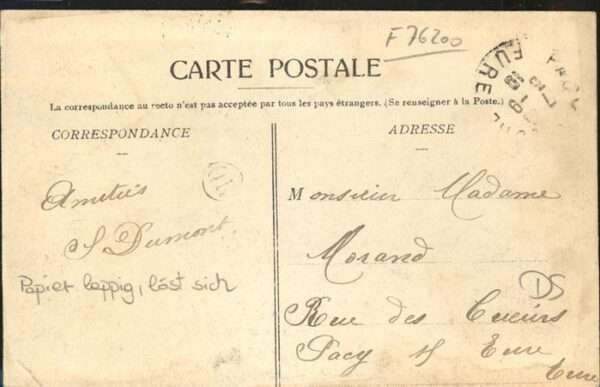 F 76200
CARTE POSTALE
La correspondance au recto n'est pas acceptée par tous les pays étrangers. (Se renseigner à la Poste.)
CORRESPONDANCE
ADRESSE
EURE
Amitiés
S Dumont
Papier lappig, löst sich
Monsieur Madame
Morand
Rue des
Pacy s/ Eure
Eure
DS